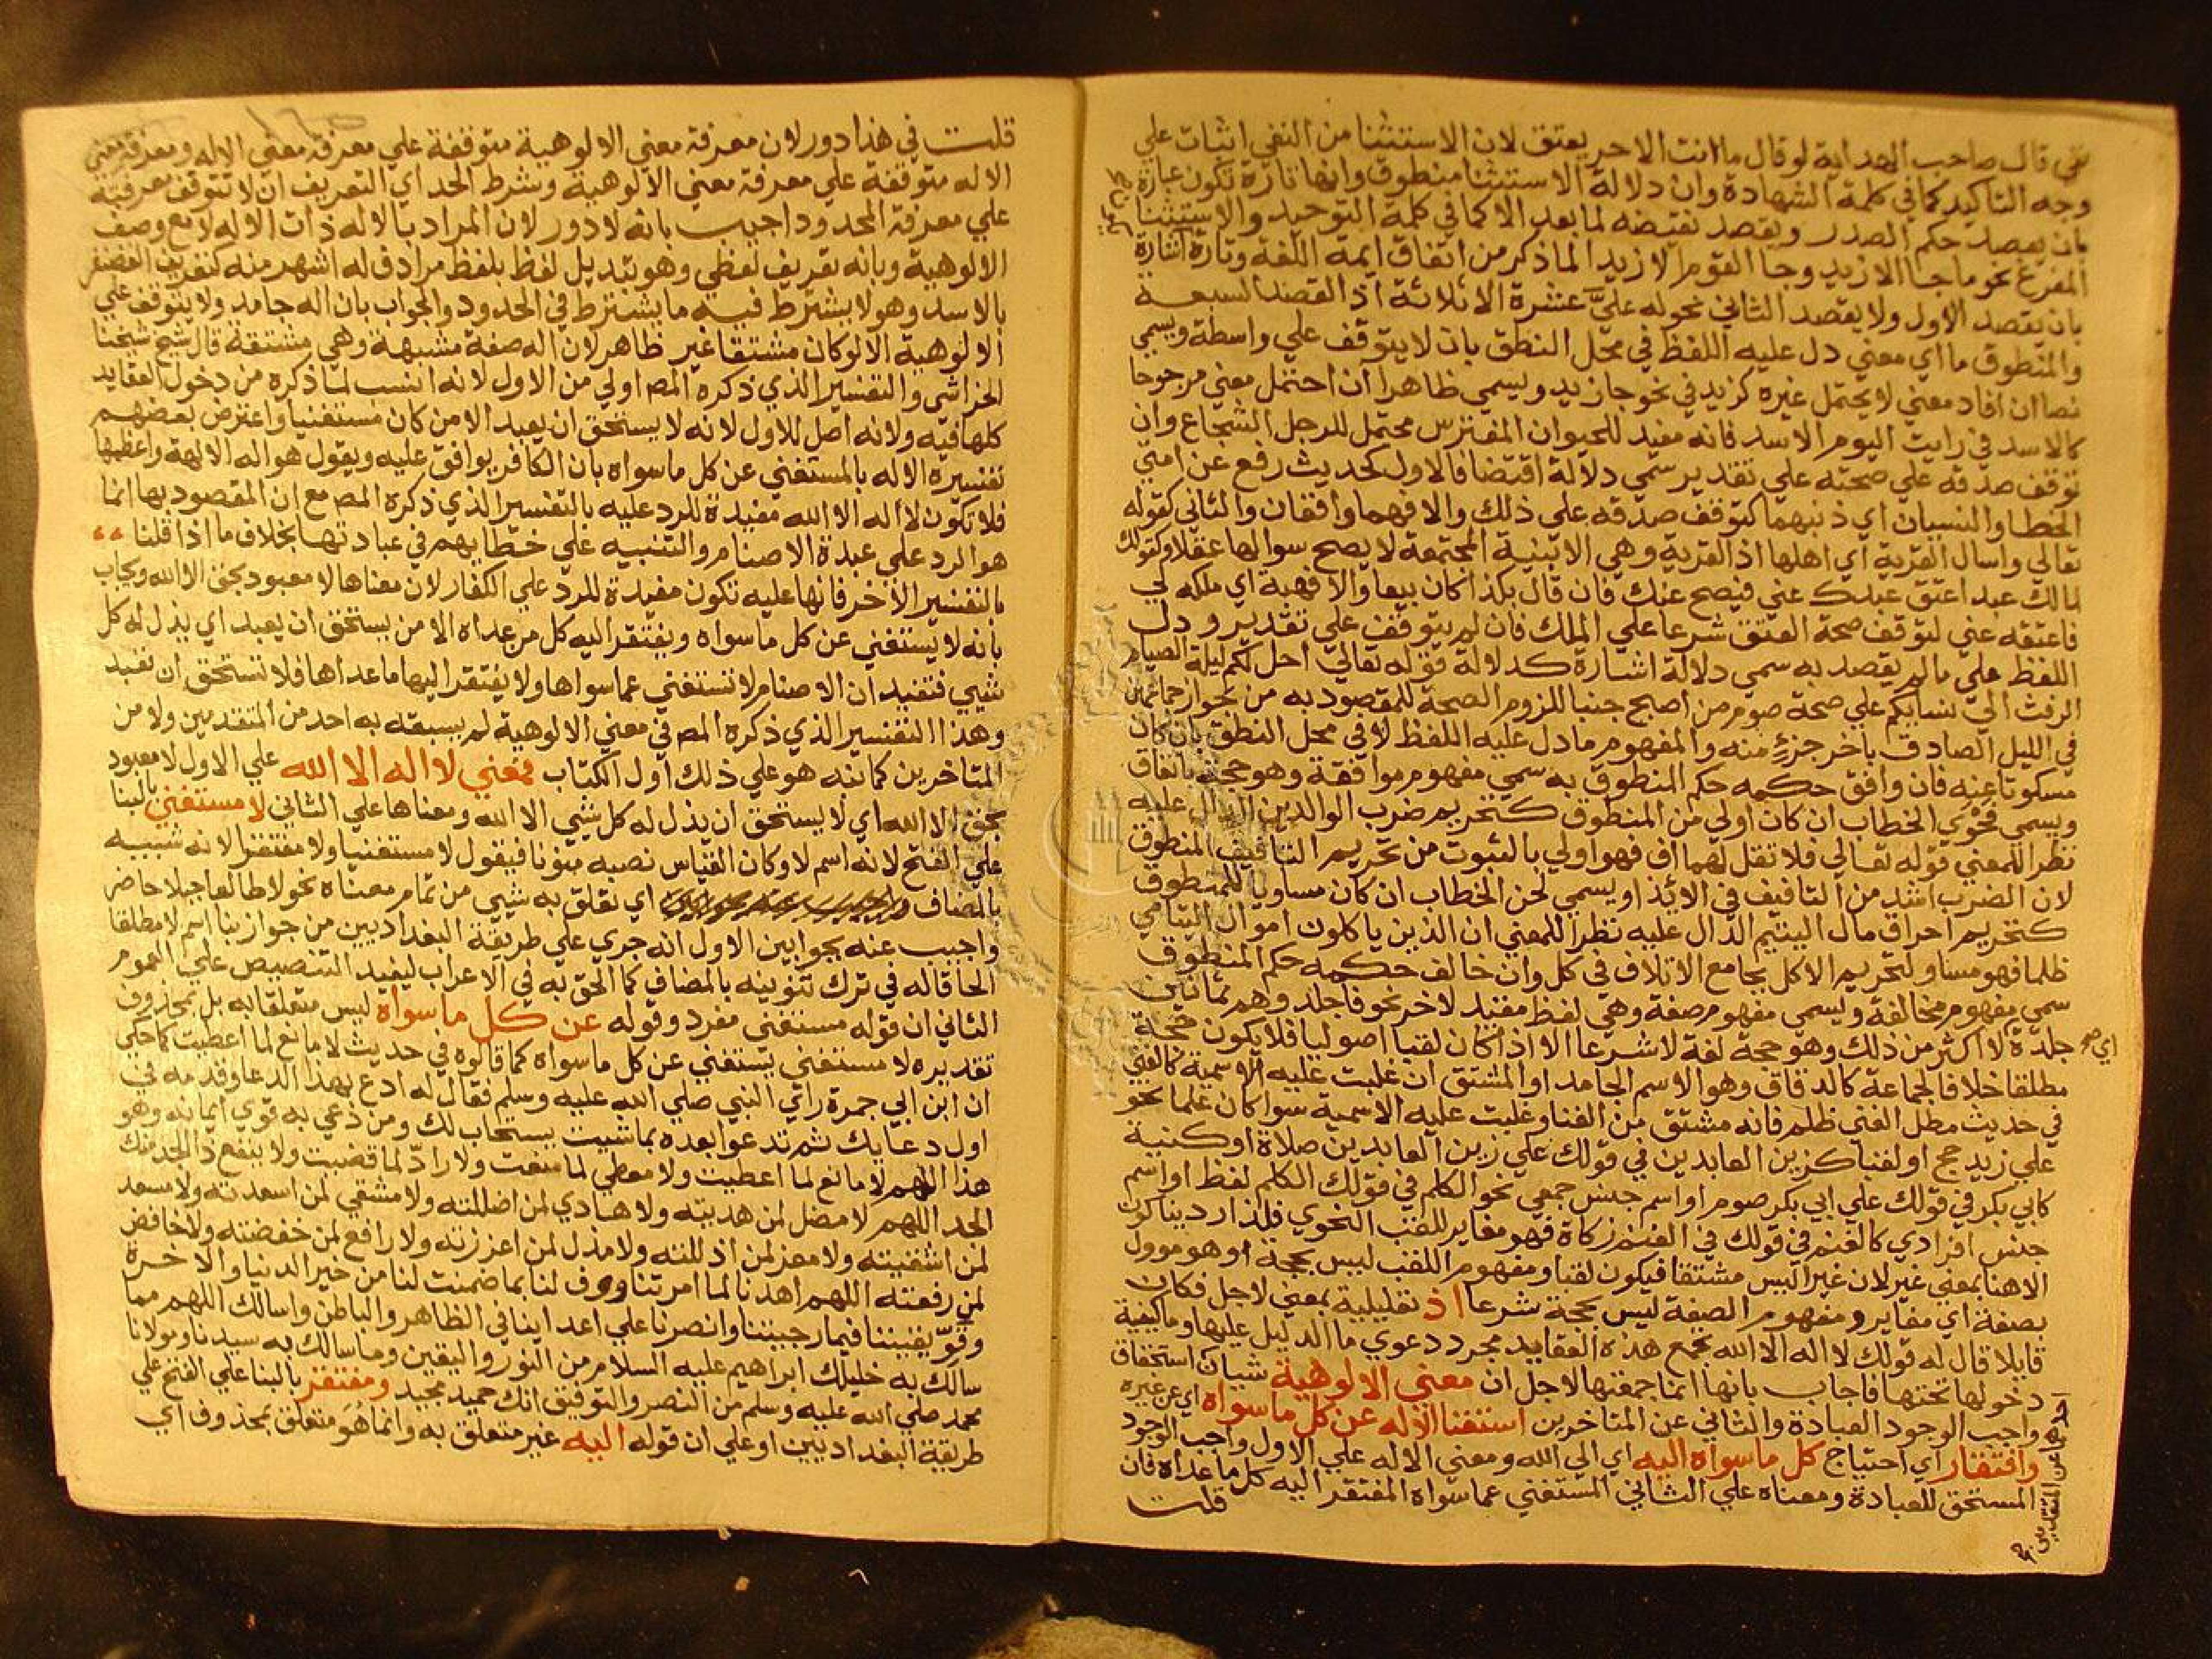 نفي قال صاحب الهداية لو قال ما انت الا حر يعتق لان الاستثنا من النفي اثبات علي
وجه التاكيد كما في كلمة الشهادة وان دلالة الاستثنا منطوق وانها تارة تكون عبارة
بان يقصد حكم الصدر ويقصد نقيضه لما بعد الا كما في كلمة التوحيد والاستثنا
المفرغ نحو ما جا الا زيد وجا القوم الا زيدا لما ذكر من اتفاق ايمة اللغة وتارة اشارة
بان يقصد الاول ولا يقصد الثاني نحو له علي عشرة الا ثلاثة اذ القصد السبعة
والمنطوق ما اي معني دل عليه اللفظ في محل النطق بان لا يتوقف علي واسطة ويسمي
نصا ان افاد معني لا يحتمل غيره كزيد في نحو جا زيد ويسمي ظاهرا ان احتمل معني مرجوحا
كالاسد في رايت اليوم الاسد فانه مفيد للحيوان المفترس محتمل للرجل الشجاع وان
توقف صدقه علي صحته علي تقدير سمي دلالة اقتضا فالاول كحديث رفع عن امتي
الخطا والنسيان اي ذنبهما لتوقف صدقه علي ذلك والا فهما واقعان والثاني كقوله
تعالي واسال القرية اي اهلها اذ القرية وهي الابنية المجتمعة لا يصح سوالها عقلا وكقولك
لمالك عبد اعتق عبدك عني فيصح عنك فان قال بكذا كان بيعا والا فهبة اي ملكه لي
فاعتقه عني لتوقف صحة العتق شرعا علي الملك فان لم يتوقف علي تقدير ودل
اللفظ علي ما لم يقصد به سمي دلالة اشارة كدلالة قوله تعالي احل لكم ليلة الصيام
الرفث الي نسايكم علي صحة صوم من اصبح جنبا للزوم الصحة للمقصود به من جواز جماعهن
في الليل الصادق باخر جزء منه والمفهوم ما دل عليه اللفظ لا في محل النطق بان كان
مسكوتا عنه فان وافق حكمه حكم المنطوق به سمي مفهوم موافقة وهو حجة باتفاق
ويسمي فحوي الخطاب ان كان اولي من المنطوق كتحريم ضرب الوالدين الدال عليه
نظرا للمعني قوله تعالي فلا تقل لهما اف فهو اولي بالثبوت من تحريم التافيف المنطوق
لان الضرب اشد من التافيف في الايذا ويسمي لحن الخطاب ان كان مساويا للمنطوق
كتحريم احراق مال اليتيم الدال عليه نظرا للمعني ان الذين ياكلون اموال اليتامي
ظلما فهو مساو لتحريم الاكل بجامع الاتلاف في كل وان خالف حكمه حكم المنطوق
سمي مفهوم مخالفة ويسمي مفهوم صفة وهي لفظ مقيد لاخر نحو فاجلدوهم ثمانين
جلدة لا اكثر من ذلك وهو حجة لغة لا شرعا الا اذا كان لقبا اصوليا فلا يكون حجة
مطلقا خلافا لجماعة كالدقاق وهو الاسم الجامد او المشتق ان غلبت عليه الاسمية كالغني
في حديث مطل الغني ظلم فانه مشتق من الغنا وغلبت عليه الاسمية سوا كان علما نحو
علي زيد حج او لقبا كزين العابدين في قولك علي زين العابدين صلاة او كنية
كابي بكر في قولك علي ابي بكر صوم او اسم جنس جمعي نحو الكلم في قولك الكلم لفظ او اسم
جنس افرادي كالغنم في قولك في الغنم زكاة فهو مغاير للقب النحوي فلذا رددنا كون
الا هنا بمعني غير لان غيرا ليس مشتقا فيكون لقبا ومفهوم اللقب ليس بحجة او هو موول
بصفة اي مغاير ومفهوم الصفة ليس بحجة شرعا اذ تعليلية بمعني لاجل فكان
قايلا قال له قولك لا اله الا الله يجمع هذه العقايد مجرد دعوي ما الدليل عليها وما كيفية
دخولها تحتها فاجاب بانها انما جمعتها لاجل ان معني الالوهية شيان استحقاق
واجب الوجود العبادة والثاني عن المتاخرين استغنا الاله عن كل ما سواه اي عن غيره
وافتقار اي احتياج كل ما سواه اليه اي الي الله ومعني الاله علي الاول واجب الوجود
المستحق للعبادة ومعناه علي الثاني المستغني عما سواه المفتقر اليه كل ما عداه فان
قلت
قلت في هذا دور لان معرفة معني الالوهية متوقفة علي معرفة معني الاله ومعرفة معني
الاله متوقفة علي معرفة معني الالوهية وشرط الحد اي التعريف ان لا تتوقف معرفته
علي معرفة المحدود اجيب بانه لا دور لان المراد بالاله ذات الاله لا مع وصف
الالوهية وبانه تعريف لفظي وهو تبديل لفظ بلفظ مرادف له اشهر منه كتعريف الغضنفر
بالاسد وهو لا يشترط فيه ما يشترط في الحدود والجواب بان اله جامد ولا يتوقف علي
الالوهية الا لو كان مشتقا غير ظاهر لان اله صفة مشبهة وهي مشتقة قال شيخ شيخنا
الخراشي والتفسير الذي ذكره المص اولي من الاول لانه انسب لما ذكره من دخول العقايد
كلها فيه ولانه اصل للاول لانه لا يستحق ان يعبد الا من كان مستغنيا واعترض بعضهم
تفسيره الاله بالمستغني عن كل ما سواه بان الكافر يوافق عليه ويقول هو اله الالهة واعظمها
فلا تكون لا اله الا الله مفيدة للرد عليه بالتفسير الذي ذكره المص مع ان المقصود بها انما
هو الرد علي عبدة الاصنام والتنبيه علي خطايهم في عبادتها بخلاف ما اذا قلنا
بالتفسير الاخر فانها عليه تكون مفيدة للرد علي الكفار لان معناها لا معبود بحق الا الله ويجاب
بانه لا يستغني عن كل ما سواه ويفتقر اليه كل من عداه الا من يستحق ان يعبد اي يذل له كل
شيي فتفيد ان الاصنام لا تستغني عما سواها ولا يفتقر اليها ما عداها فلا تستحق ان تعبد
وهذا التفسير الذي ذكره المص في معني الالوهية لم يسبقه به احد من المتقدمين ولا من
المتاخرين كما نبه هو علي ذلك اول الكتاب فمعني لا اله الا الله علي الاول لا معبود
بحق الا الله اي لا يستحق ان يذل له كل شيي الا الله ومعناها علي الثاني لا مستغني بالبنا
علي الفتح لانه اسم لا وكان القياس نصبه منونا فيقول لا مستغنيا ولا مفتقرا لانه شبيه
بالمضاف اي تعلق به شيي من تمام معناه نحو لا طالعا جبلا حاضر
واجيب عنه بجوابين الاول انه جري علي طريقة البغداديين من جواز بنا اسم لا مطلقا
الحاقا له في ترك تنوينه بالمضاف كما الحق به في الاعراب ليفيد التنصيص علي العموم
الثاني ان قوله مستغني مفرد وقوله عن كل ما سواه ليس متعلقا به بل بمحذوف
تقديره لا مستغني يستغني عن كل ما سواه كما قالوه في حديث لا مانع لما اعطيت كما حكي
ان ابن ابي جمرة راي النبي صلي الله عليه وسلم فقال له ادع بهذا الدعا وقدمه في
اول دعايك ثم تدعو بعده بما شيت يستجاب لك ومن دعي به قوي ايمانه وهو
هذا اللهم لا مانع لما اعطيت ولا معطي لما منعت ولا راد لما قضيت ولا ينفع ذا الجد منك
الجد اللهم لا مضل لمن هديته ولا هادي لمن اضللته ولا مشقي لمن اسعدته ولا مسعد
لمن اشقيته ولا معز لمن اذللته ولا مذل لمن اعززته ولا رافع لمن خفضته ولا خافض
لمن رفعته اللهم اهدنا لما امرتنا ووف لنا بما ضمنت لنا من خير الدنيا والاخرة
وقو يقيننا فيما رجيتنا وانصرنا علي اعداينا في الظاهر والباطن واسالك اللهم مما
سالك به خليلك ابراهيم عليه السلام من النور واليقين وما سالك به سيدنا ومولانا
محمد صلي الله عليه وسلم من النصر والتوفيق انك حميد مجيد ومفتقر بالبنا علي الفتح علي
طريقة البغداديين او علي ان قوله اليه غير متعلق به وانما هو متعلق بمحذوف اي